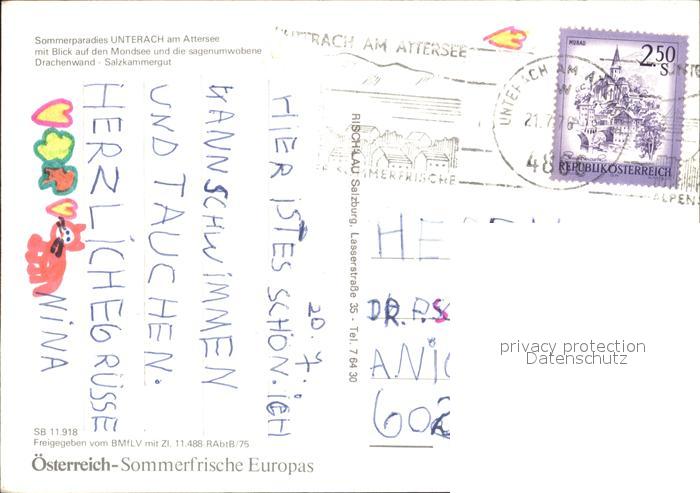 Sommerparadies UNTERACH am Attersee
mit Blick auf den Mondsee und die sagenumwobene
Drachenwand - Salzkammergut
UNTERACH AM ATTERSEE
SOMMERFRISCHE
UNTERACH AM A
21.7.76
48
ALPEN
MURAU
2.50
S
REPUBLIK ÖSTERREICH
20.7.
HIER ISTES SCHÖN. ICH
KANNSCHWIMMEN
UND TAUCHEN.
HERZLICHEGRÜSSE
NINA
RISCHLAU Salzburg, Lasserstraße 35 - Tel. 7 64 30
HE
DR.
ANIC
602
privacy protection
Datenschutz
SB 11.918
Freigegeben vom BMfLV mit Zl. 11.488 RAbtB/75
Österreich-Sommerfrische Europas